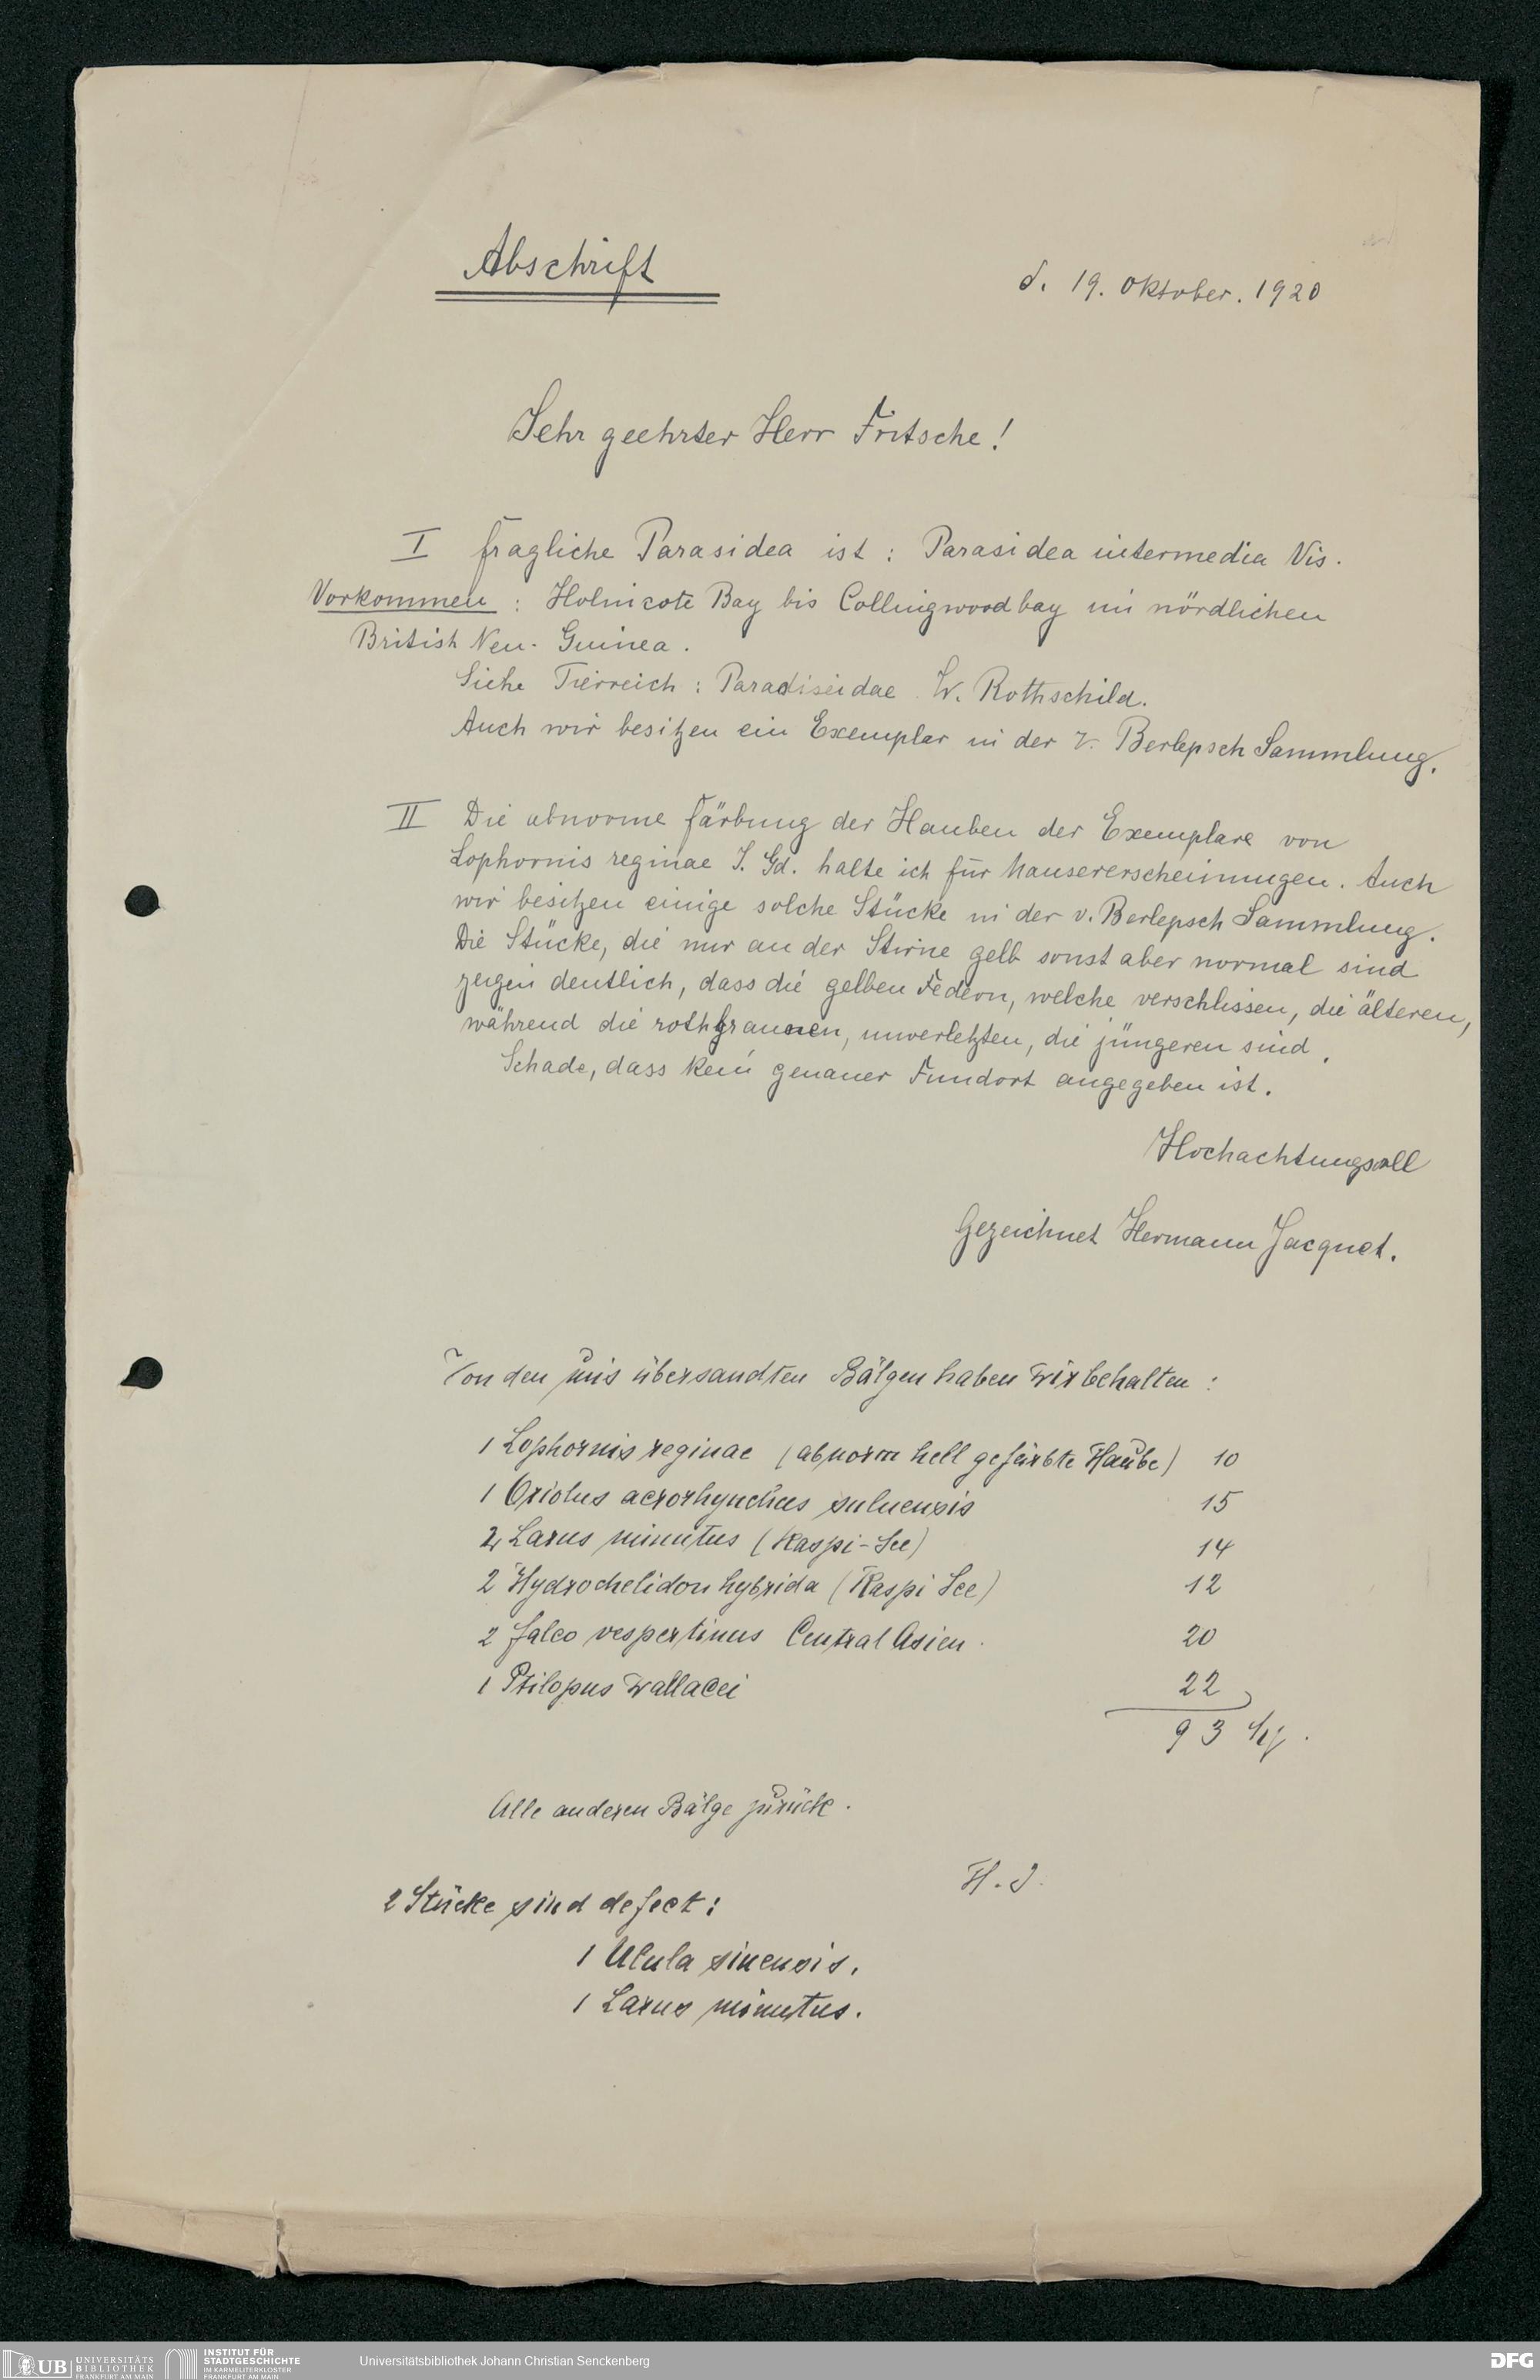 Abschrift
d. 19. Oktober. 1920
Sehr geehrter Herr Fritsche!
I fragliche Parasidea ist : Parasidea intermedia Vis.
Vorkommen : Holnicote Bay bis Collingwoodbay im nördlichen
British Neu-Guinea.
Siehe Tierreich : Paradiseidae W. Rothschild.
Auch wir besitzen ein Exemplar in der v. Berlepsch Sammlung.
II Die abnorme färbung der Hauben der Exemplare von
Lophornis reginae J. Gd. halte ich für Mausererscheinungen. Auch
wir besitzen einige solche Stücke in der v. Berlepsch Sammlung.
Die Stücke, die nur an der Stirne gelb sonst aber normal sind
zeigen deutlich, dass die gelben Federn, welche verschlissen, die älteren,
während die rothbraunen, unverletzten, die jüngeren sind.
Schade, dass kein genauer Fundort angegeben ist.
Hochachtungsvoll
Gezeichnet Hermann Jacquet.
Von den uns übersandten Bälgen haben wir behalten :
1 Lophornis reginae (abnorm hell gefärbte Haube) 10
1 Oriolus acrorhynchus suluensis 15
2 Larus minutus (Kaspi-See) 14
2 Hydrochelidon hybrida (Kaspi See) 12
2 Falco vespertinus Central Asien. 20
1 Ptilopus wallacei 22
93 M.
Alle anderen Bälge zurück.
H. J.
2 Stücke sind defect:
1 Ulula sinensis.
1 Larus minutus.
UB UNIVERSITÄTS
BIBLIOTHEK
FRANKFURT AM MAIN
INSTITUT FÜR
STADTGESCHICHTE
IM KARMELITERKLOSTER
FRANKFURT AM MAIN
Universitätsbibliothek Johann Christian Senckenberg
DFG